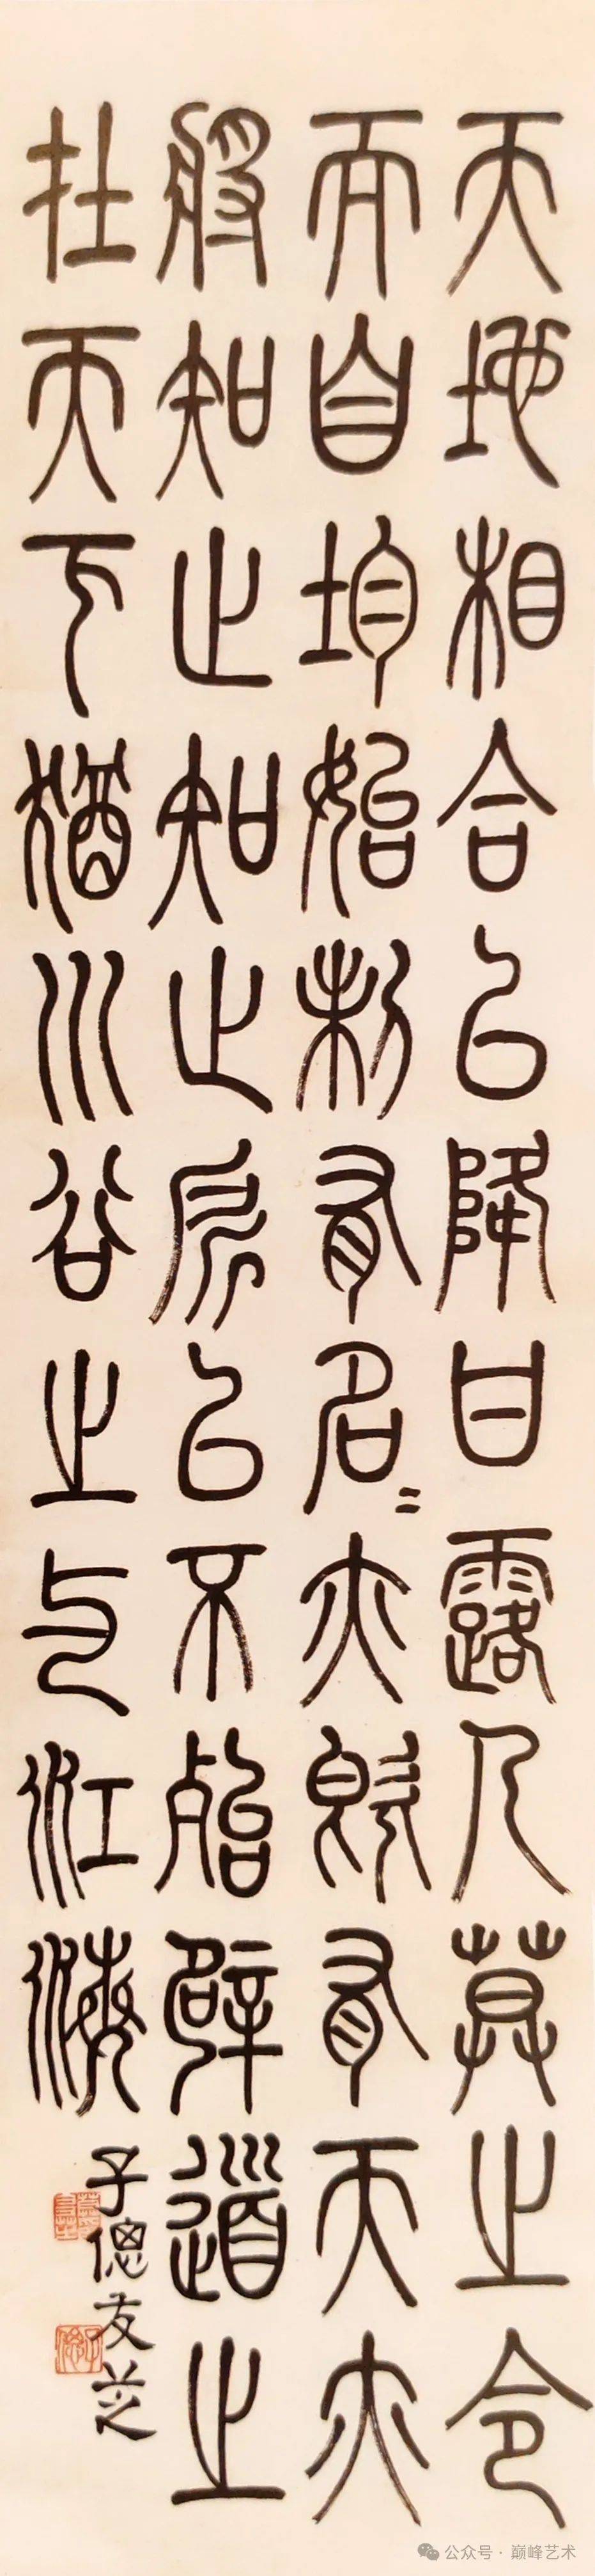 天地相合以降甘露人莫之令
而自均始制有名〻亦既有天亦
將知止知止所以不殆辟道之
在天下猶川谷之与江海
子偲友芝
公众号·巅峰艺术